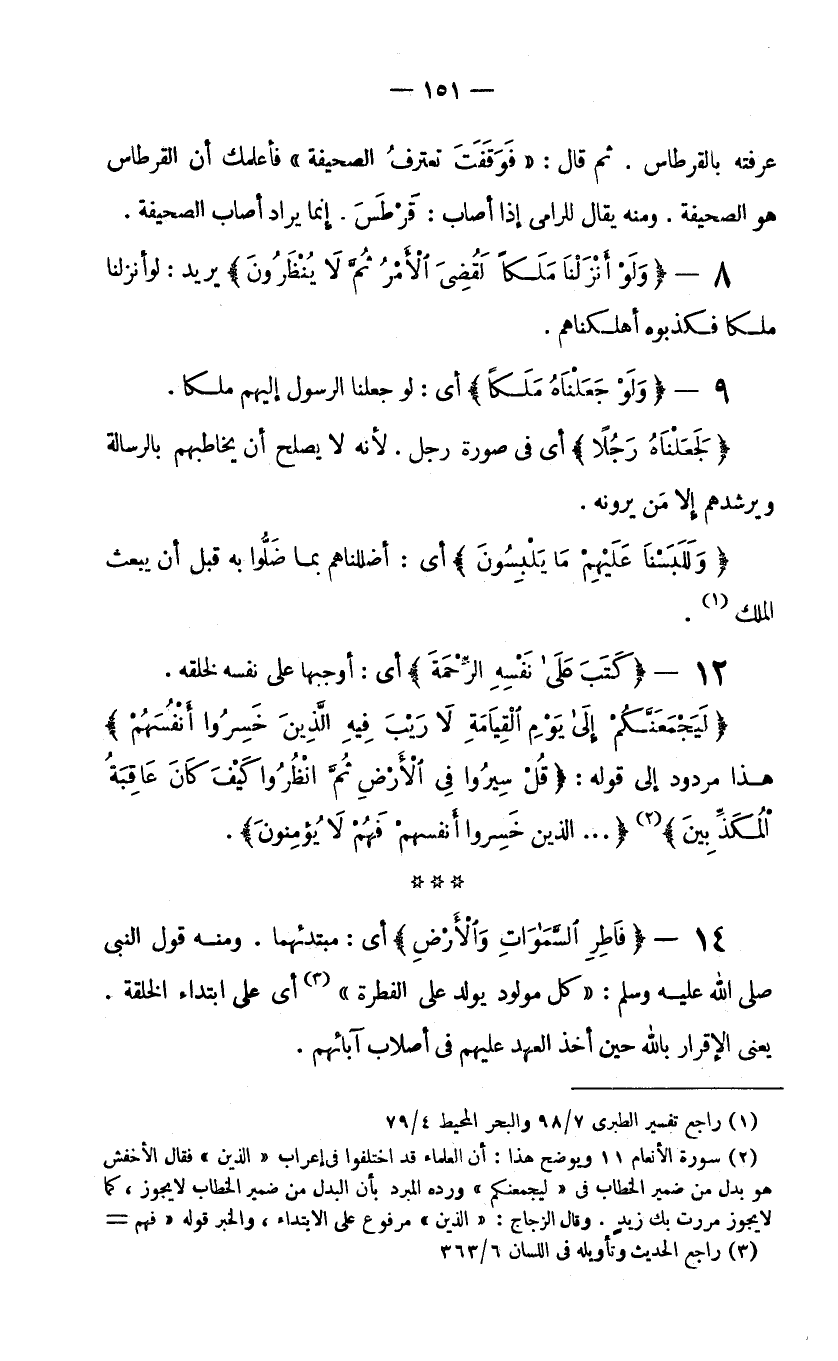 — ١٥١ —
عرفته بالقرطاس . ثم قال : « فَوَقَفَتَ تعترفُ الصحيفة » فأعلمك أن القرطاس
هو الصحيفة . ومنه يقال للرامى إذا أصاب : قَرْطَسَ . إنما يراد أصاب الصحيفة .
٨ — ﴿ وَلَوْ أَنْزَلْنَا مَلَـكاً لَقُضِىَ ٱلْأَمْرُ ثُمَّ لَا يُنْظَرُونَ ﴾ يريد : لوأنزلنا
ملـكا فـكذبوه أهلـكناهم .
٩ — ﴿ وَلَوْ جَعَلْنَاهُ مَلَـكاً ﴾ أى : لو جعلنا الرسول إليهم ملـكا .
﴿ لَجَعَلْنَاهُ رَجُلًا ﴾ أى فى صورة رجل . لأنه لا يصلح أن يخاطبهم بالرسالة
ويرشدهم إلا مَن يرونه .
﴿ وَلَلَبَسْنَا عَلَيْهِمْ مَا يَلْبِسُونَ ﴾ أى : أضللناهم بمـا ضَلُّوا به قبل أن يبعث
الملك (١) .
١٢ — ﴿ كَتَبَ عَلَىٰ نَفْسِهِ الرَّحْمَةَ ﴾ أى : أوجبها على نفسه لخلقه .
﴿ لَيَجْمَعَنَّـكُمْ إِلَىٰ يَوْمِ ٱلْقِيَامَةِ لَا رَيْبَ فِيهِ الَّذِينَ خَسِرُوا أَنْفُسَهُمْ ﴾
هـذا مردود إلى قوله : ﴿ قُلْ سِيرُوا فِى ٱلْأَرْضِ ثُمَّ انْظُرُوا كَيْفَ كَانَ عَاقِبَةُ
ٱلْمُـكَذِّبِينَ ﴾(٢) ﴿ ... الذين خَسِروا أنفسهمْ فَهُمْ لَا يُؤمِنونَ ﴾ .
* * *
١٤ — ﴿ فَاطِرِ ٱلسَّمَٰوَاتِ وَٱلْأَرْضِ ﴾ أى : مبتدئهما . ومنـه قول النبى
صلى الله عليـه وسلم : « كل مولود يولد على الفطرة » (٣) أى على ابتداء الخلقة .
يعنى الإقرار بالله حين أخذ العهد عليهم فى أصلاب آبائهم .
(١) راجع تفسير الطبرى ٩٨/٧ والبحر المحيط ٧٩/٤
(٢) سورة الأنعام ١١ ويوضح هذا : أن العلماء قد اختلفوا فى إعراب « الذين » فقال الأخفش
هو بدل من ضمير الخطاب فى « ليجمعنكم » ورده المبرد بأن البدل من ضمير الخطاب لايجوز ، كما
لايجوز مررت بك زيدٍ . وقال الزجاج : « الذين » مرفوع على الابتداء ، والخبر قوله « فهم =
(٣) راجع الحديث وتأويله فى اللسان ٣٦٣/٦